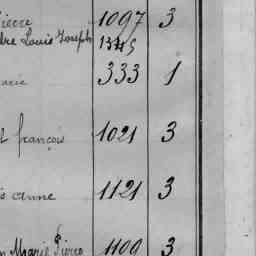 Pierre 1097 3
dre Louis Joseph 1345
Marie 333 1
t françois 1021 3
s anne 1121 3
n Marie Pierre 1100 3